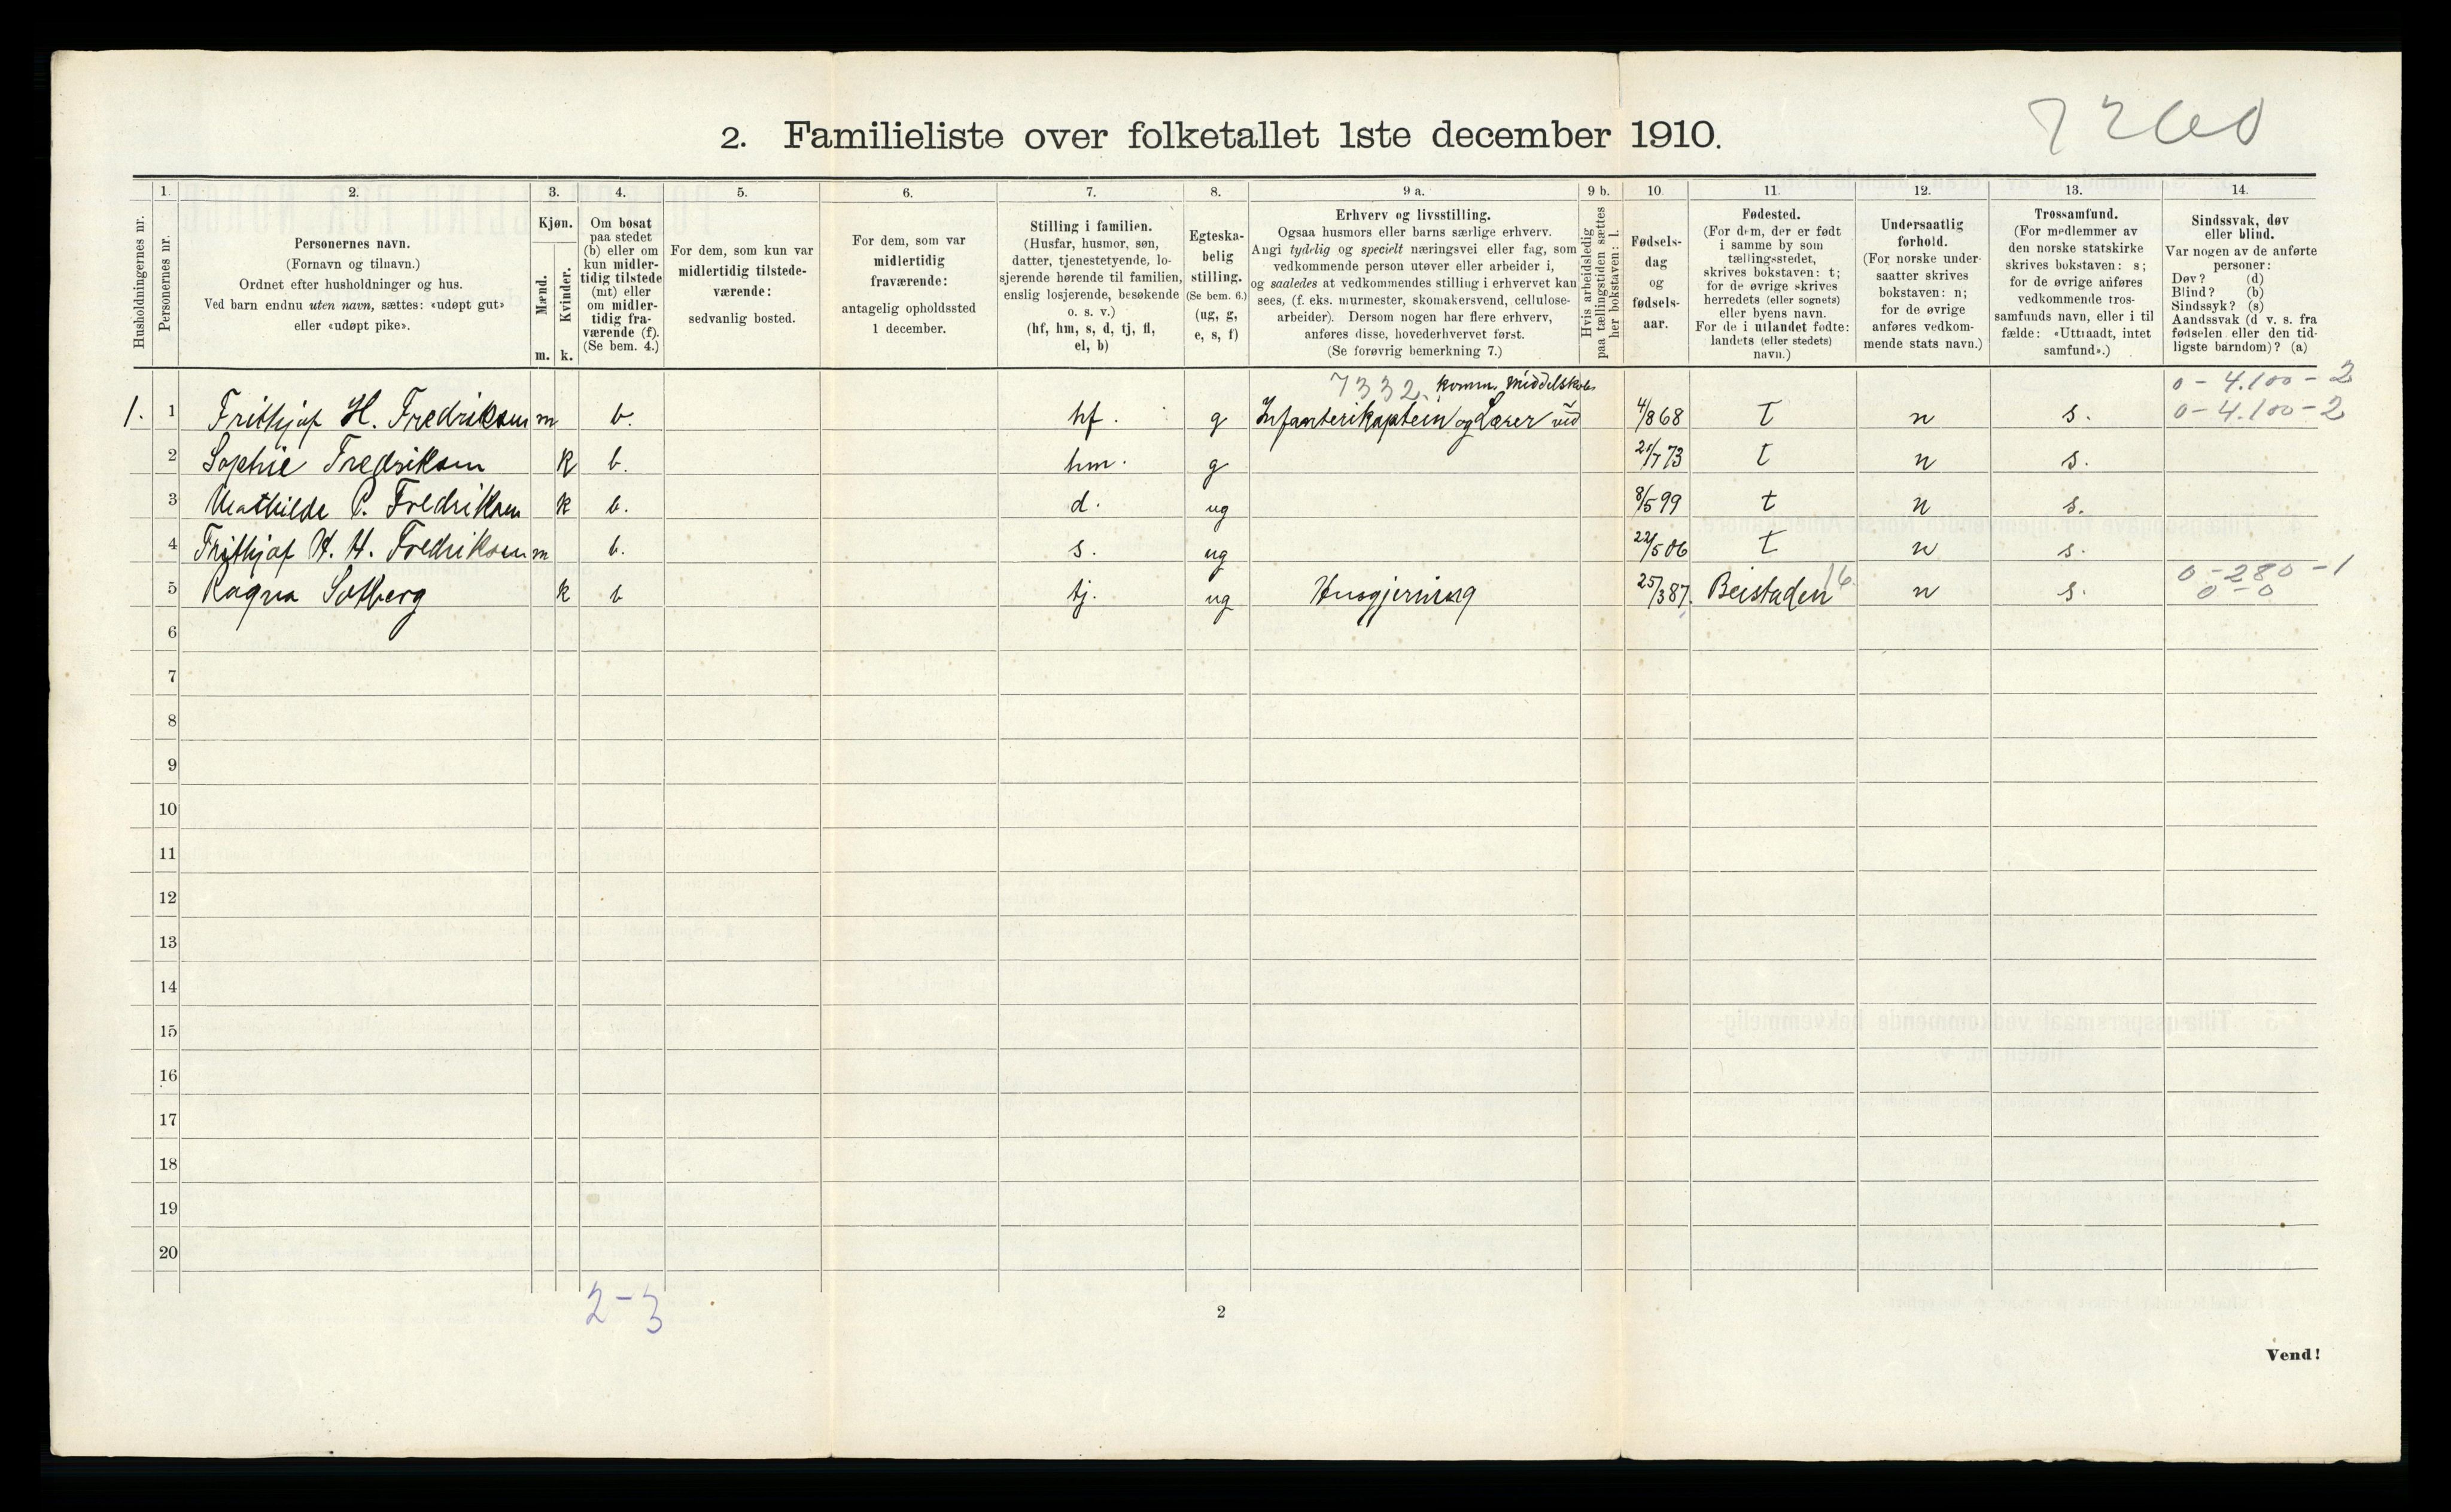 7260
2. Familieliste over folketallet 1ste december 1910.
Husholdningernes nr.
1.
Personernes nr.
2.
Personernes navn.
(Fornavn og tilnavn.)
Ordnet efter husholdninger og hus.
Ved barn endnu uten navn, sættes: «udøpt gut»
eller «udøpt pike».
3.
Kjøn.
Mænd.
Kvinder.
m. k.
4.
Om bosat
paa stedet
(b) eller om
kun midler-
tidig tilstede
(mt) eller
om midler-
tidig fra-
værende (f).
(Se bem. 4.)
5.
For dem, som kun var
midlertidig tilstede-
værende:
sedvanlig bosted.
6.
For dem, som var
midlertidig
fraværende:
antagelig opholdssted
1 december.
7.
Stilling i familien.
(Husfar, husmor, søn,
datter, tjenestetyende, lo-
sjerende hørende til familien,
enslig losjerende, besøkende
o. s. v.)
(hf, hm, s, d, tj, fl,
el, b)
8.
Egteska-
belig
stilling.
(Se bem. 6.)
(ug, g,
e, s, f)
9 a.
Erhverv og livsstilling.
Ogsaa husmors eller barns særlige erhverv.
Angi tydelig og specielt næringsvei eller fag, som
vedkommende person utøver eller arbeider i,
og saaledes at vedkommendes stilling i erhvervet kan
sees, (f. eks. murmester, skomakersvend, cellulose-
arbeider). Dersom nogen har flere erhverv,
anføres disse, hovederhvervet først.
(Se forøvrig bemerkning 7.)
9 b.
Hvis arbeidsledig
paa tællingstiden sættes
her bokstaven: l.
10.
Fødsels-
dag
og
fødsels-
aar.
11.
Fødested.
(For dem, der er født
i samme by som
tællingsstedet,
skrives bokstaven: t;
for de øvrige skrives
herredets (eller sognets)
eller byens navn.
For de i utlandet fødte:
landets (eller stedets)
navn.)
12.
Undersaatlig
forhold.
(For norske under-
saatter skrives
bokstaven: n;
for de øvrige
anføres vedkom-
mende stats navn.)
13.
Trossamfund.
(For medlemmer av
den norske statskirke
skrives bokstaven: s;
for de øvrige anføres
vedkommende tros-
samfunds navn, eller i til
fælde: «Uttraadt, intet
samfund».)
14.
Sindssvak, døv
eller blind.
Var nogen av de anførte
personer:
Døv? (d)
Blind? (b)
Sindssyk? (s)
Aandssvak (d v. s. fra
fødselen eller den tid-
ligste barndom)? (a)
7332. komm. Middelskole 0 - 4.100 - 2
1. 1 Frithjof H. Fredriksen m b. hf. g Infanterikaptein og Lærer ved 4/8 68 t n s. 0 - 4.100 - 2
2 Sophie Fredriksen k b. hm. g 21/7 73 t n s.
3 Mathilde P. Fredriksen k b. d. ug 8/5 99 t n s.
4 Frithjof H. H. Fredriksen m b. s. ug 22/5 06 t n s.
16 0 - 280 - 1
5 Ragna Solberg k b tj. ug Husgjerning 25/3 87. Beistaden n s. 0 - 0
6
7
8
9
10
11
12
13
14
15
16
17
18
19
20
2-3
2
Vend!